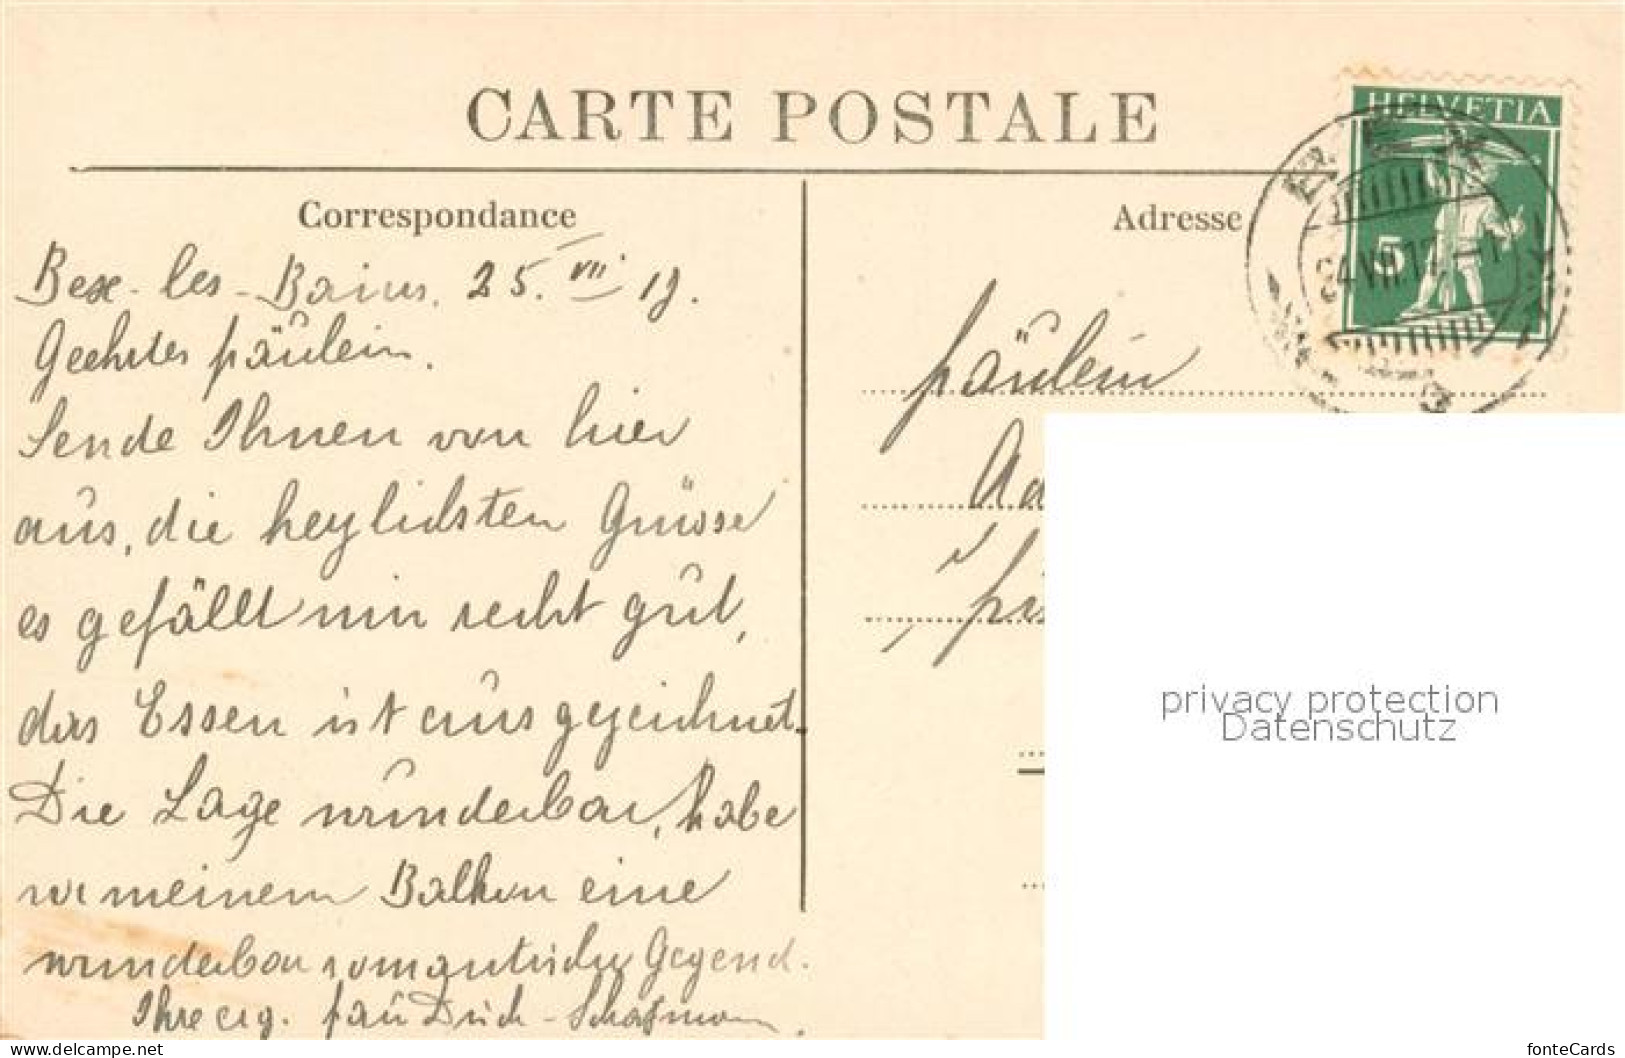 CARTE POSTALE
HELVETIA
5
Correspondance
Adresse
Bex-les-Bains. 25. VII 17.
Geehrtes Fräulein.
Sende Ihnen von hier
aus, die herzlichsten Grüsse
es gefällt mir recht gut,
das Essen ist ausgezeichnet.
Die Lage wunderbar, habe
meinem Balkon eine
wunderbar romantische Gegend.
Ihre erg. Frau
Fräulein
privacy protection
Datenschutz
www.delcampe.net
fonteCards